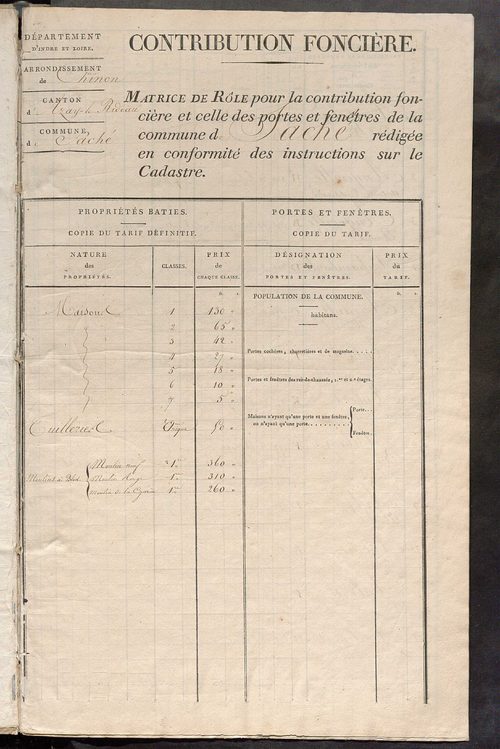 DÉPARTEMENT
D'INDRE ET LOIRE.
ARRONDISSEMENT
de Chinon
CANTON
d'Azay-le-Rideau
COMMUNE,
d Saché
CONTRIBUTION FONCIÈRE.
MATRICE DE RÔLE pour la contribution fon-
cière et celle des portes et fenêtres de la
commune d Saché rédigée
en conformité des instructions sur le
Cadastre.
PROPRIÉTÉS BATIES. PORTES ET FENÊTRES.
COPIE DU TARIF DÉFINITIF. COPIE DU TARIF.
NATURE des PROPRIÉTÉS. CLASSES. PRIX de CHAQUE CLASSE. DÉSIGNATION des PORTES ET FENÊTRES. PRIX du TARIF.
POPULATION DE LA COMMUNE.
Maisons 1 130 "
habitans.
2 65 "
3 42 "
4 27 " Portes cochères, charretières et de magasins.....
5 18 "
6 10 " Portes et fenêtres des rez-de-chaussée, 1.er et 2.e étages.
7 5 "
Maisons n'ayant qu'une porte et une fenêtre, ou n'ayant qu'une porte......... Porte..
Fenêtre.
Tuilleries Unique 50 "
Moulins à Bled Moulin neuf 1re 360 "
Moulin Rouge 1re 310 "
Moulin de la 1re 260 "